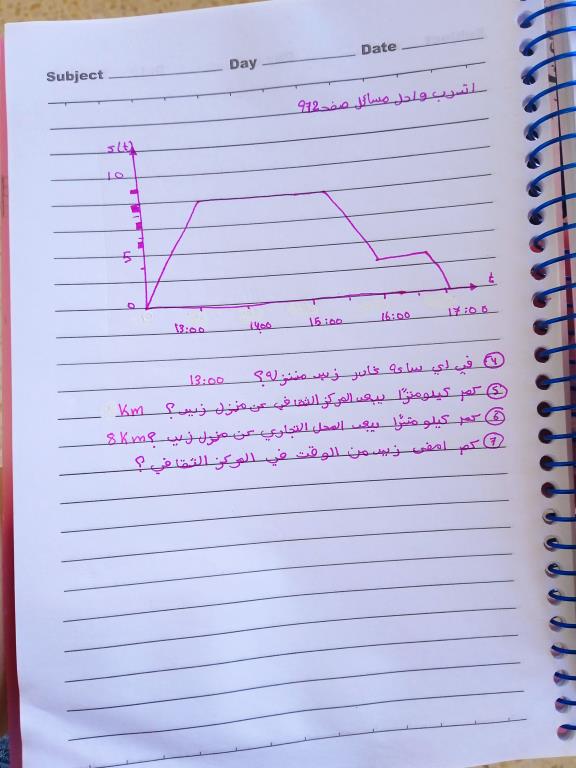 Subject Day Date
اتدرب واحل مسائل صفحة 972
s(t)
10
5
0
t
13:00 1400 15:00 16:00 17:00
4 في اي ساعة غادر زيد منزله؟ 13:00
5 كم كيلومترًا يبعد المركز الثقافي عن منزل زيد؟ Km
6 كم كيلو مترًا يبعد المحل التجاري عن منزل زيد؟ 8Km
7 كم امضى زيد من الوقت في المركز الثقافي؟